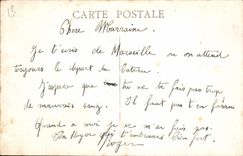 13
CARTE POSTALE
Chère Marraine
Je t'écris de Marseille ou on attend
toujours le départ du bateau
J'espère que tu ne te fais pas trop
de mauvais sang. Il faut pas t'en faire
Quand a moi je ne m'en fais pas.
Ton Roger qui t'embrasse bien fort
Roger